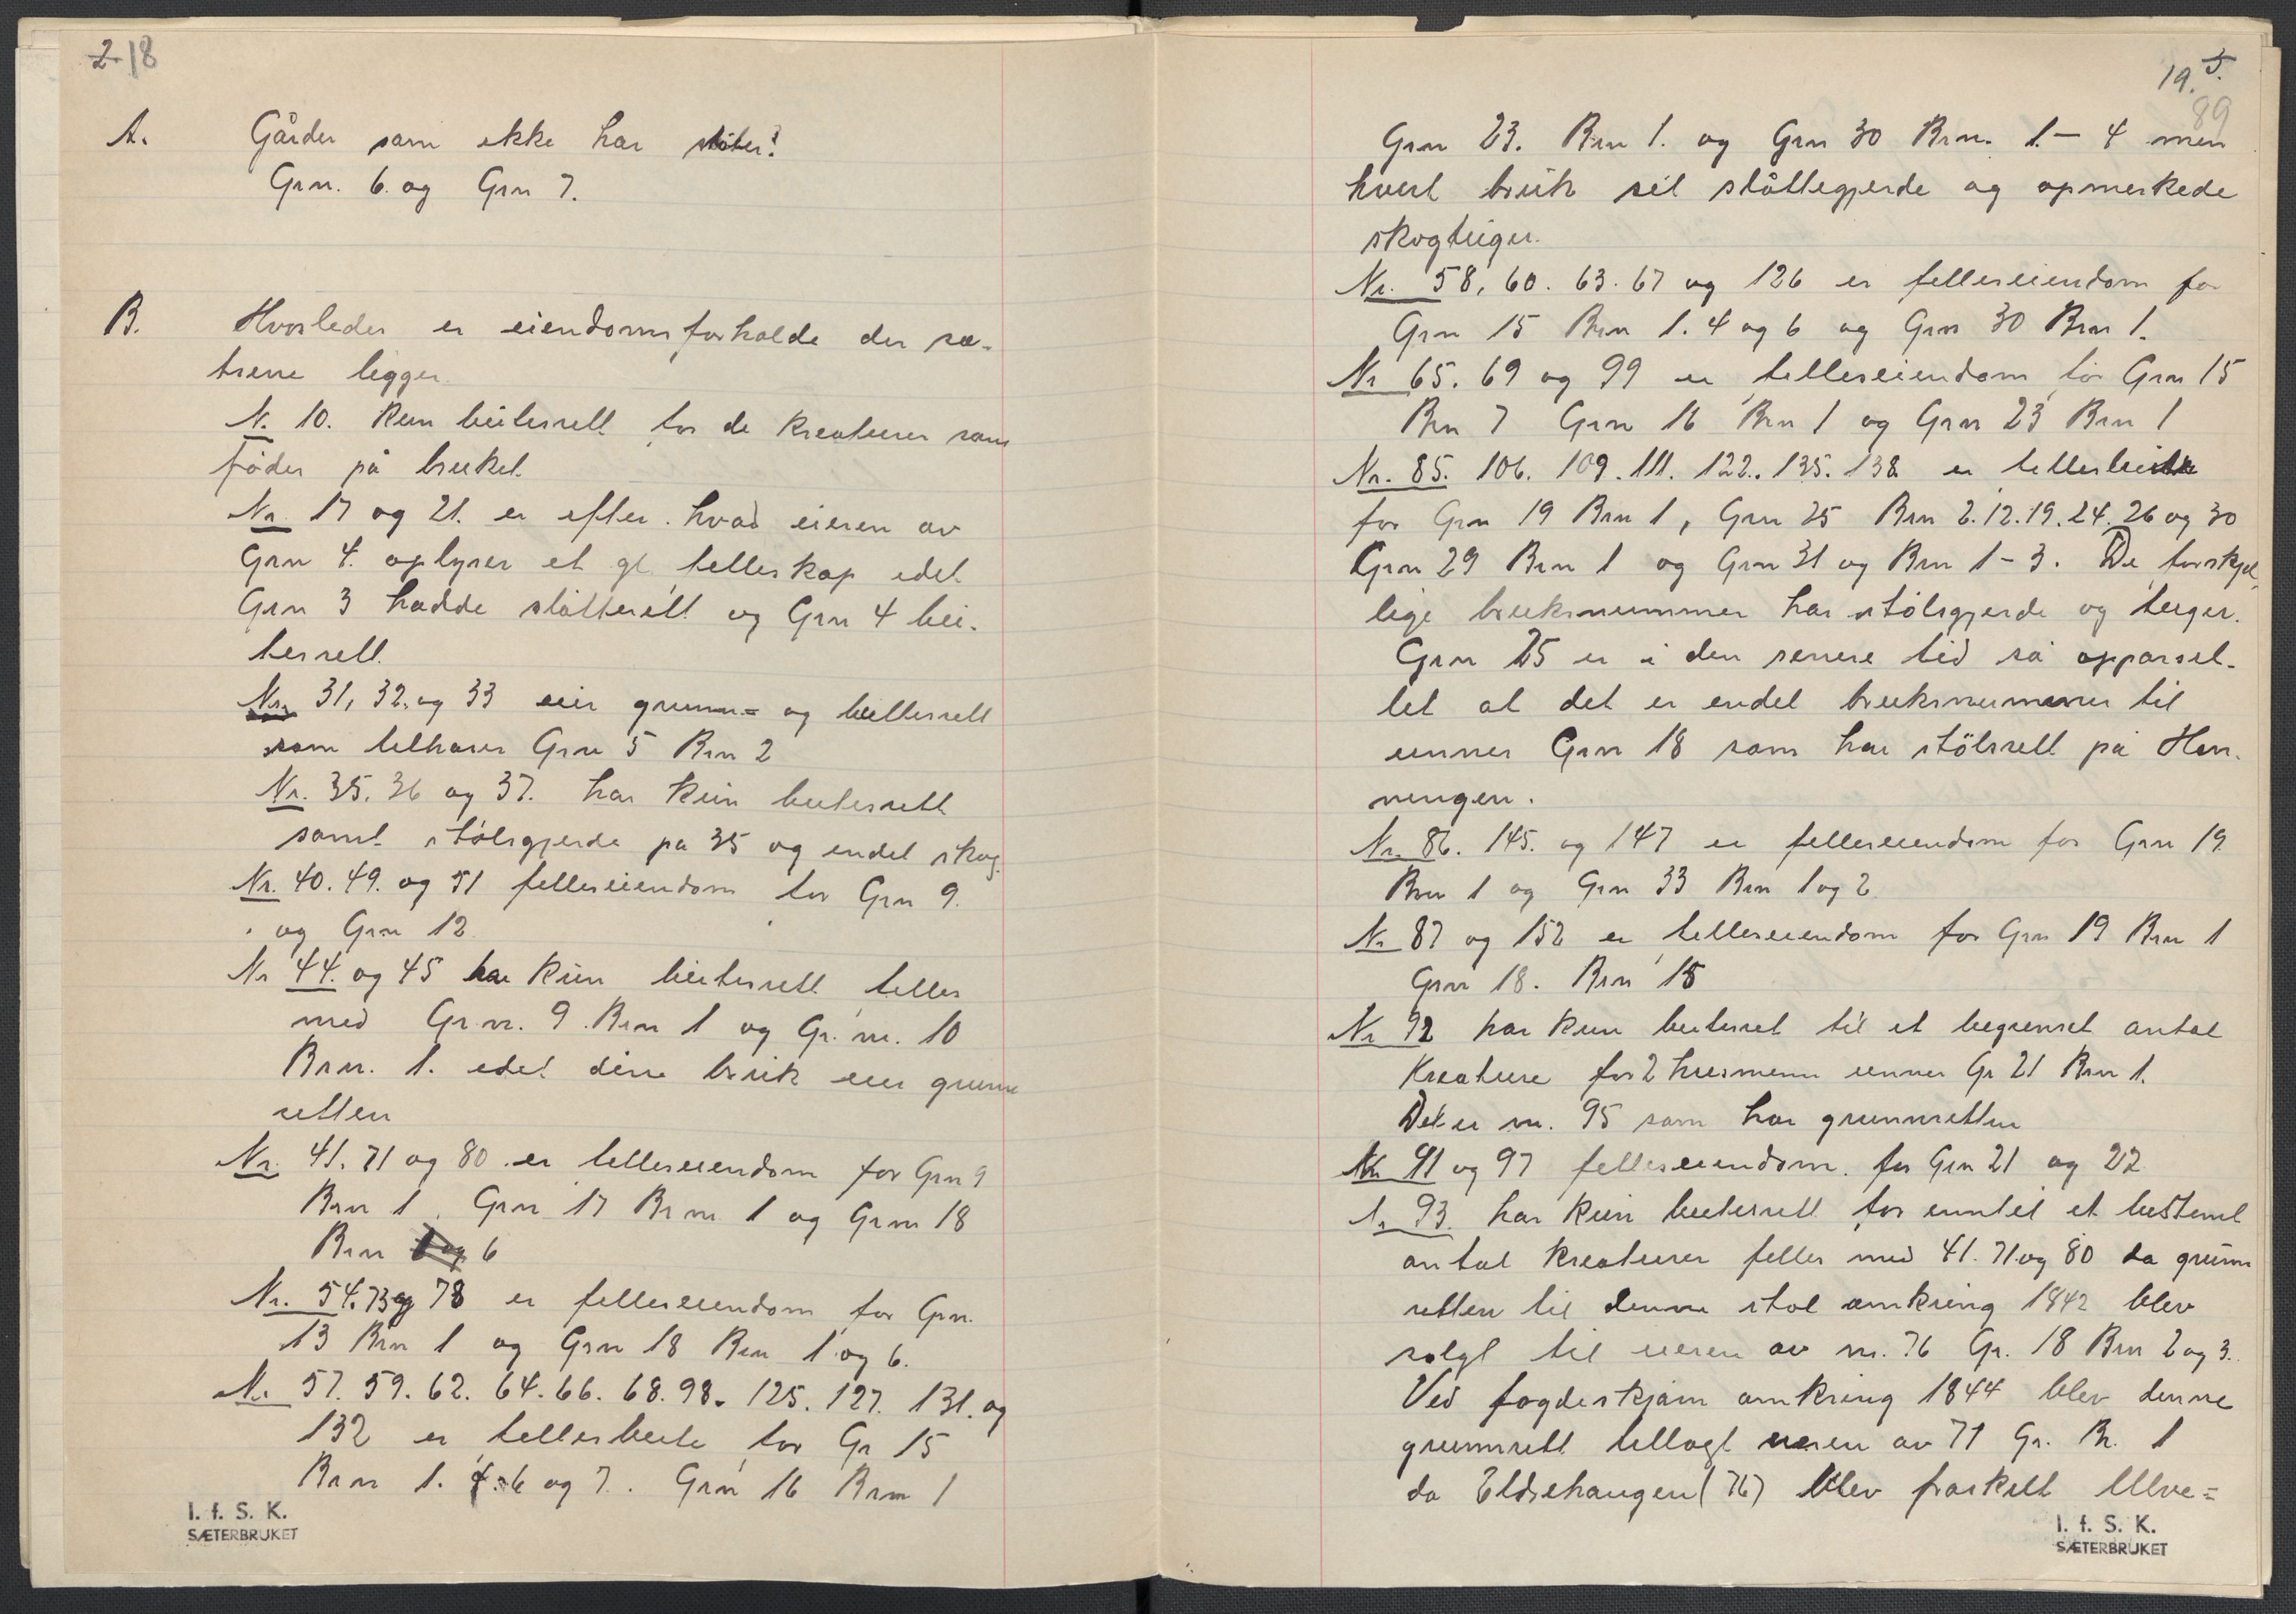 2. 18
A. Gårder som ikke har støler?
Grn. 6. og Grn 7.
B. Hvorledes er eiendomsforholde der sæ-
trene ligger.
N. 10. Kun beiterett for de kreaturer som
föder på bruket.
Nr. 17 og 21. er efter hvad eieren av
Grn 4. oplyser et gl. felleskap idet
Grn 3 hadde slåtterett og Grn 4 bei-
terrett.
Nr. 31, 32, og 33 eier grunn- og beiterett
som tilhører Grn 5 Brn 2
Nr. 35. 36 og 37. har kun beiterett
samt stölsgjerde på 35 og endel skog.
Nr. 40. 49. og 51 felleseiendom for Grn 9.
og Grn 12
Nr 44. og 45 har kun beiterett felles
med Gr.nr. 9. Brn 1 og Gr. nr. 10
Brn. 1. idet disse bruk eier grunn
retten
Nr. 41. 71 og 80 er felleseiendom for Grn 9
Brn 1. Grn 17 Brn 1 og Grn 18
Brn 6
Nr. 54. 73 og 78 er felleseiendom for Grn.
13 Brn 1 og Grn 18 Brn 1 og 6.
Nr 57. 59. 62. 64. 66. 68. 98. 125. 127. 131. og
132 er fellesbeite for Gr 15
Brn 1. 4. 6 og 7. Grn 16 Brn 1
I. f. S. K.
SÆTERBRUKET
19. 5.
89
Grn 23. Brn 1. og Grn 30 Brn. 1.- 4 men
hvert bruk sit slåttegjerde og opmerkede
skogteiger.
Nr. 58, 60. 63. 67 og 126 er felleseiendom for
Grn 15 Brn 1. 4 og 6 og Grn 30 Brn 1.
Nr 65. 69 og 99 er felleseiendom for Grn 15
Brn 7 Grn 16 Brn 1 og Grn 23 Brn 1
Nr. 85. 106. 109. 111. 122. 135. 138 er fellesbeite
for Grn 19 Brn 1, Grn 25 Brn 2. 12. 19. 24. 26 og 30
Grn 29 Brn 1 og Grn 31 og Brn 1-3. De forskjel
lige bruksnummer har stölsgjerde og teiger.
Grn 25 er i den senere tid så opparsel-
let at det er endel bruksnummer til
unner Grn 18 som har stölsrett på Hen-
ningen.
Nr. 86. 145. og 147 er felleseiendom for Grn 19
Brn 1 og Grn 33 Brn 1 og 2
Nr 87 og 152 er felleseiendom for Grn 19 Brn 1
Grn 18. Brn 15
Nr 92 har kun beiteret til et begrenset antal
Kreature for 2 husmenn unner Gr 21 Brn 1.
Det er nr. 95 som har grunnretten
Nr 91 og 97 felleseiendom for Grn 21 og 22
Nr 93. har kun beiterett for inntil et bestemt
antal kreaturer felles med 41. 71 og 80 da grunn
retten til denne støl omkring 1842 blev
solgt til eieren av nr. 76 Gr. 18 Brn 2 og 3.
Ved fogdeskjøn omkring 1844 blev denne
grunnrett tillagt eieren av 71 Gr. Br. 1
da Eldsehaugen (76) blev fraskilt Ulve=
I. f. S. K.
SÆTERBRUKET